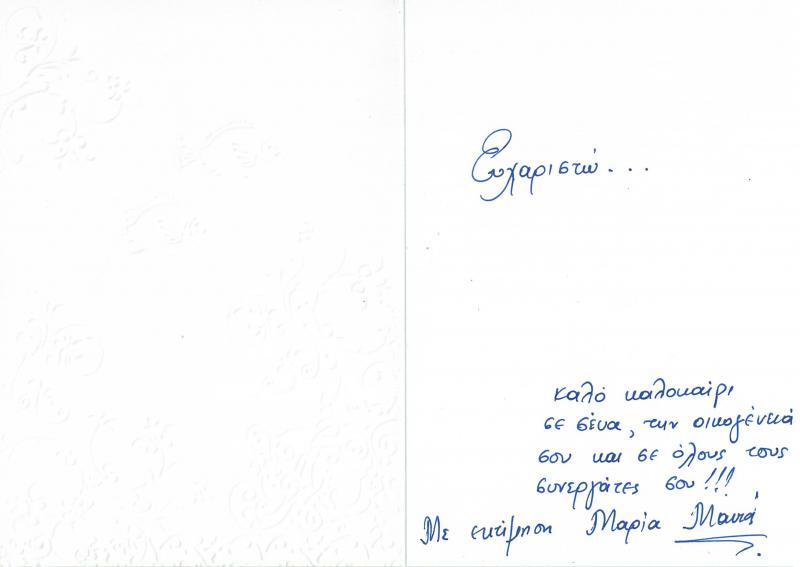 Ευχαριστώ...
καλό καλοκαίρι
σε σένα, την οικογένειά
σου και σε όλους τους
συνεργάτες σου!!!
Με εκτίμηση Μαρία